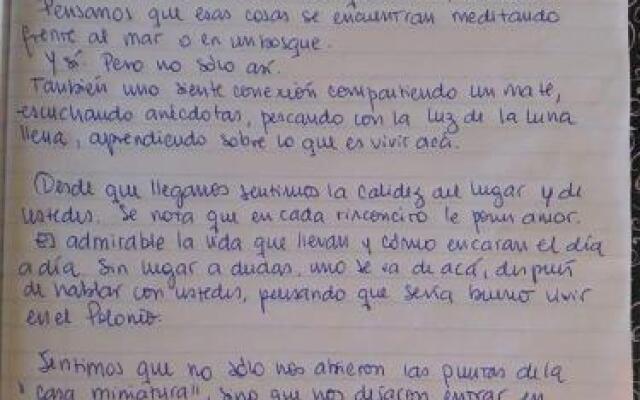 Pensamos que esas cosas se encuentran meditando
frente al mar o en un bosque.
Y sí. Pero no sólo así.
También uno siente conexión compartiendo un mate,
escuchando anécdotas, pescando con la luz de la luna
llena, aprendiendo sobre lo que es vivir acá.
Desde que llegamos sentimos la calidez del lugar y de
ustedes. Se nota que en cada rinconcito le ponen amor.
Es admirable la vida que llevan y cómo encaran el día
a día. Sin lugar a dudas, uno se va de acá, después
de hablar con ustedes, pensando que sería bueno vivir
en el Polonio.
Sentimos que no sólo nos abrieron las puertas de la
"casa miniatura", sino que nos dejaron entrar en